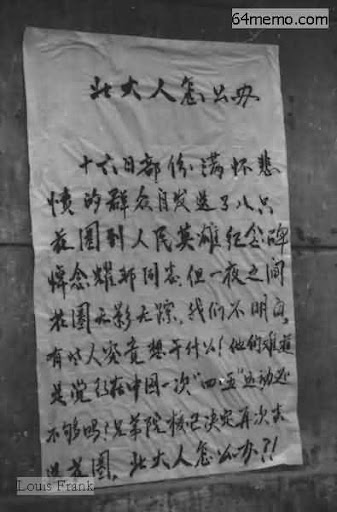 64memo.com
北大人怎么办
十六日部份满怀悲
愤的群众自发送了八只
花圈到人民英雄纪念碑
悼念耀邦同志.但一夜之间
花圈无影无踪,我们不明白,
有些人究竟想干什么!他们难道
是觉得在中国一次"四·五"运动还
不够吗!兄弟院校已决定再次去
送花圈,北大人怎么办?!
Louis Frank